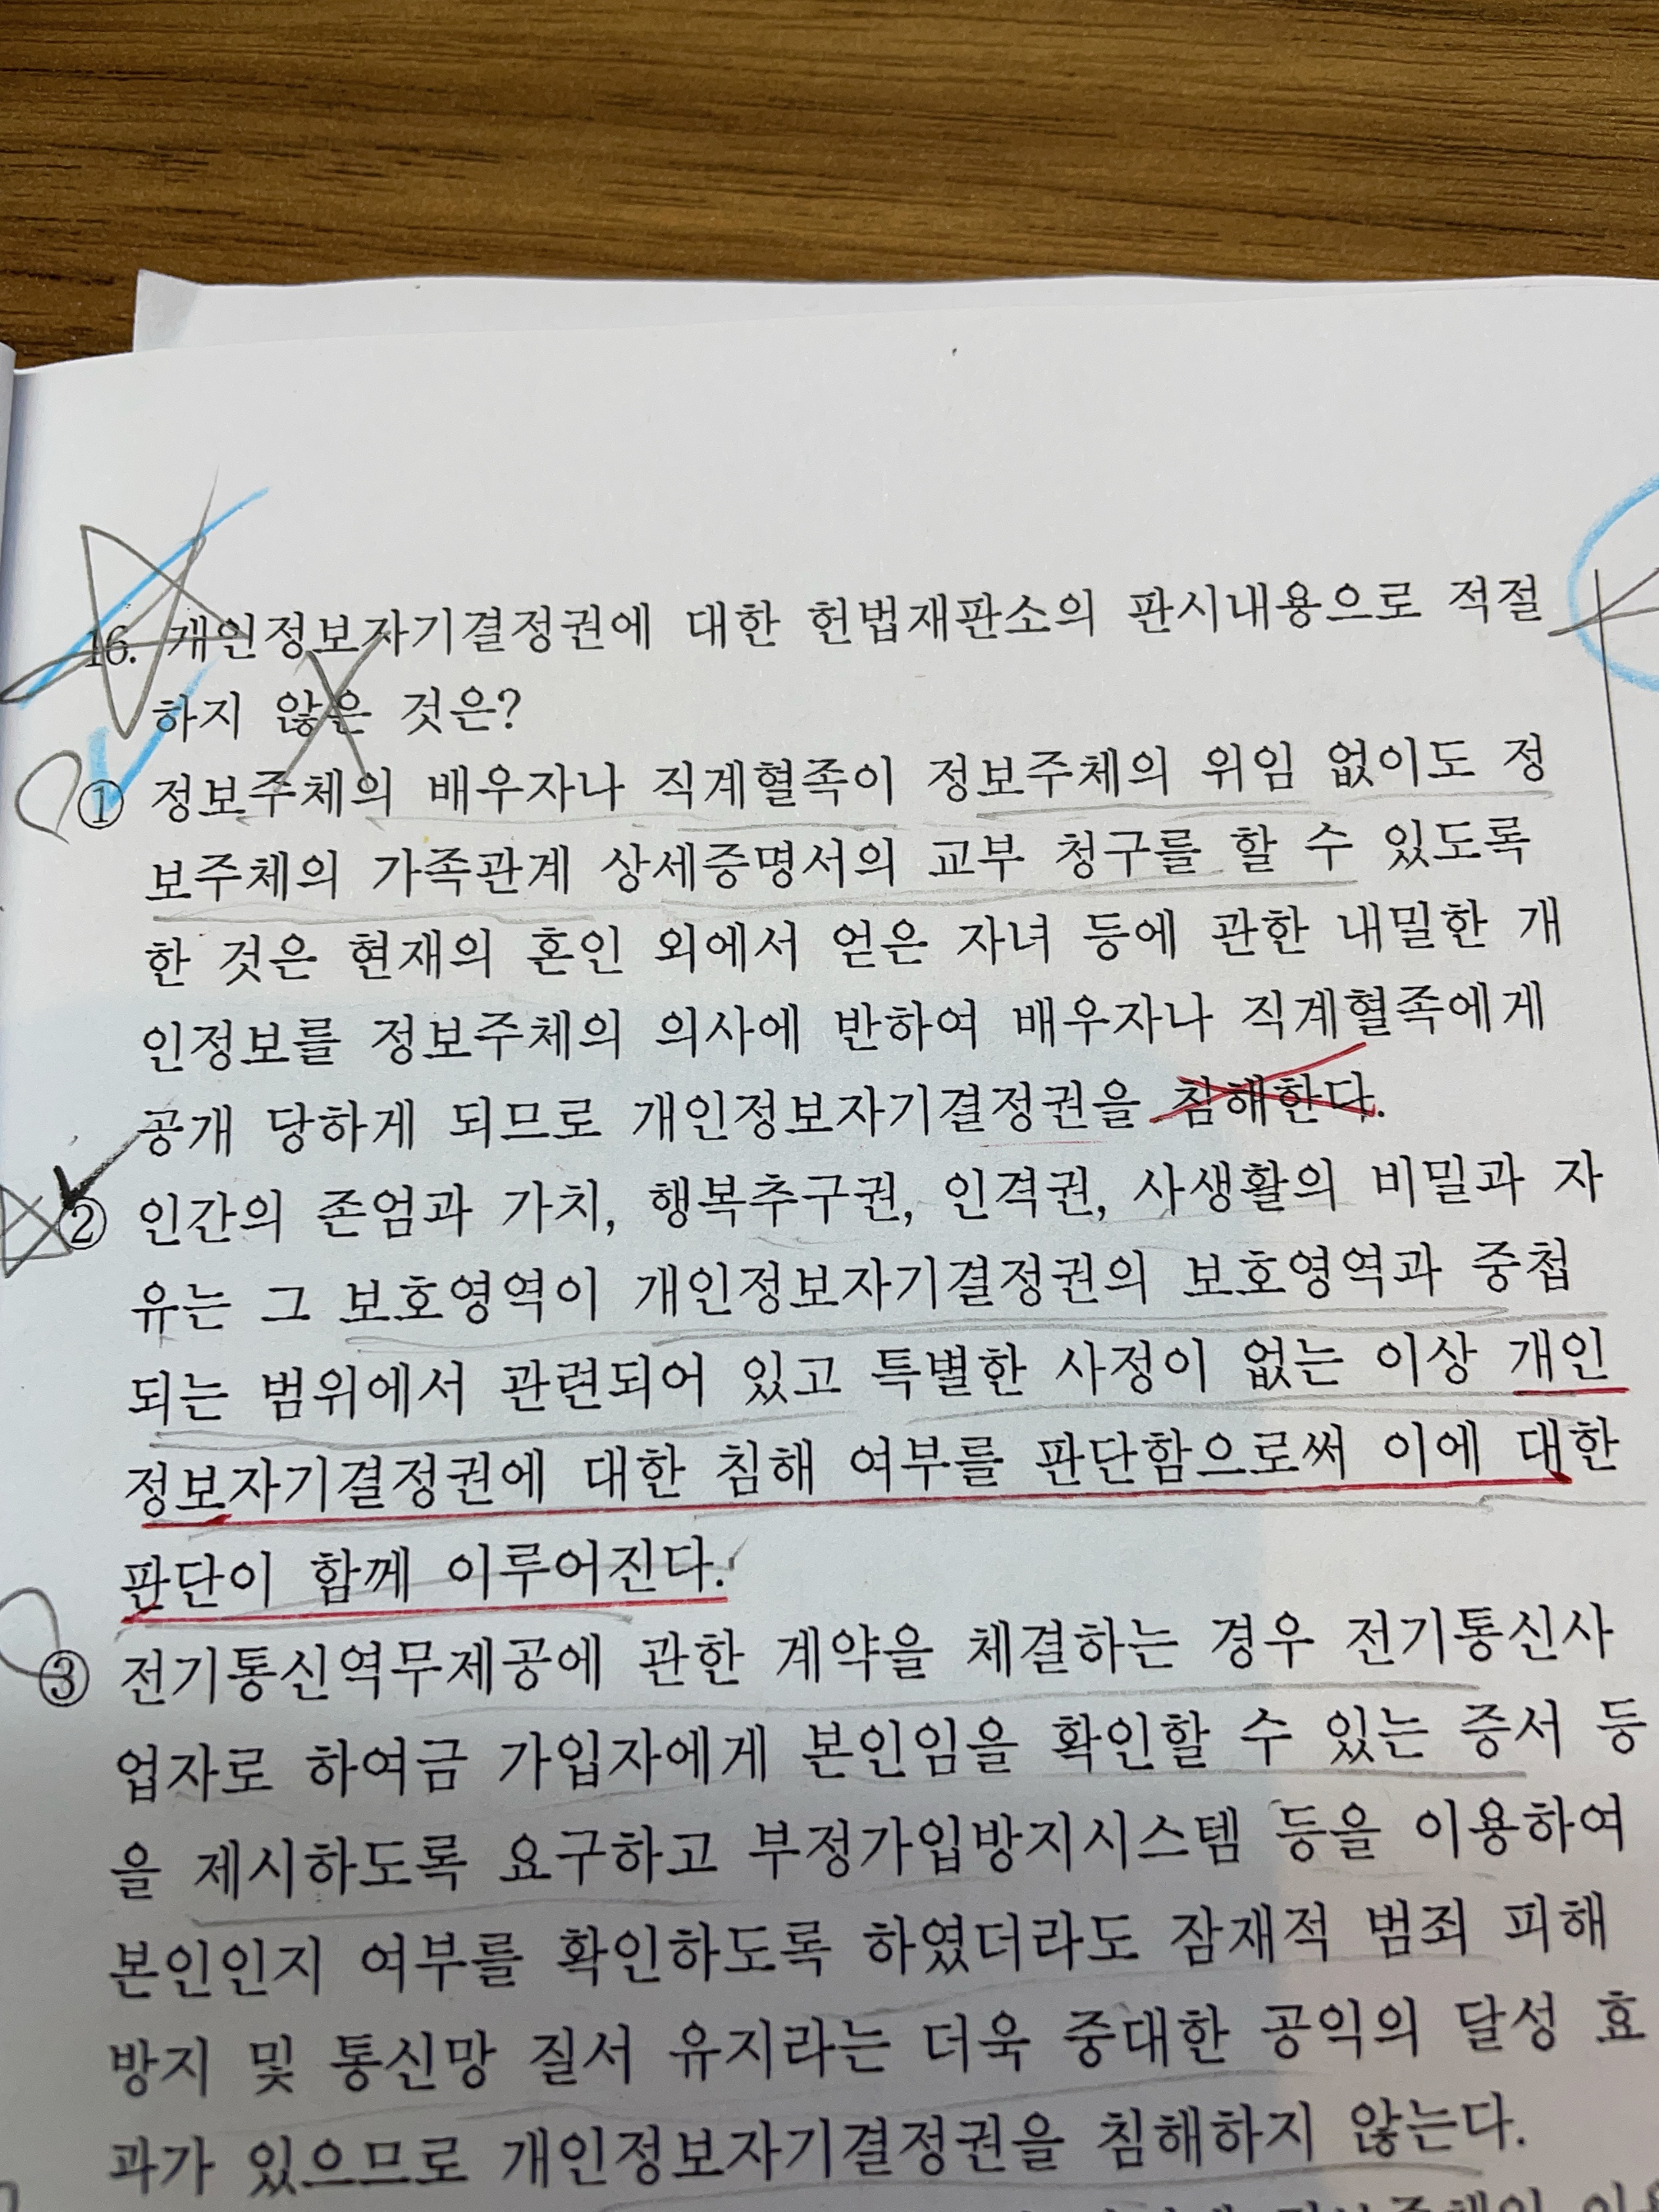 16. 개인정보자기결정권에 대한 헌법재판소의 판시내용으로 적절
하지 않은 것은?
① 정보주체의 배우자나 직계혈족이 정보주체의 위임 없이도 정
보주체의 가족관계 상세증명서의 교부 청구를 할 수 있도록
한 것은 현재의 혼인 외에서 얻은 자녀 등에 관한 내밀한 개
인정보를 정보주체의 의사에 반하여 배우자나 직계혈족에게
공개 당하게 되므로 개인정보자기결정권을 침해한다.
② 인간의 존엄과 가치, 행복추구권, 인격권, 사생활의 비밀과 자
유는 그 보호영역이 개인정보자기결정권의 보호영역과 중첩
되는 범위에서 관련되어 있고 특별한 사정이 없는 이상 개인
정보자기결정권에 대한 침해 여부를 판단함으로써 이에 대한
판단이 함께 이루어진다.
③ 전기통신역무제공에 관한 계약을 체결하는 경우 전기통신사
업자로 하여금 가입자에게 본인임을 확인할 수 있는 증서 등
을 제시하도록 요구하고 부정가입방지시스템 등을 이용하여
본인인지 여부를 확인하도록 하였더라도 잠재적 범죄 피해
방지 및 통신망 질서 유지라는 더욱 중대한 공익의 달성 효
과가 있으므로 개인정보자기결정권을 침해하지 않는다.